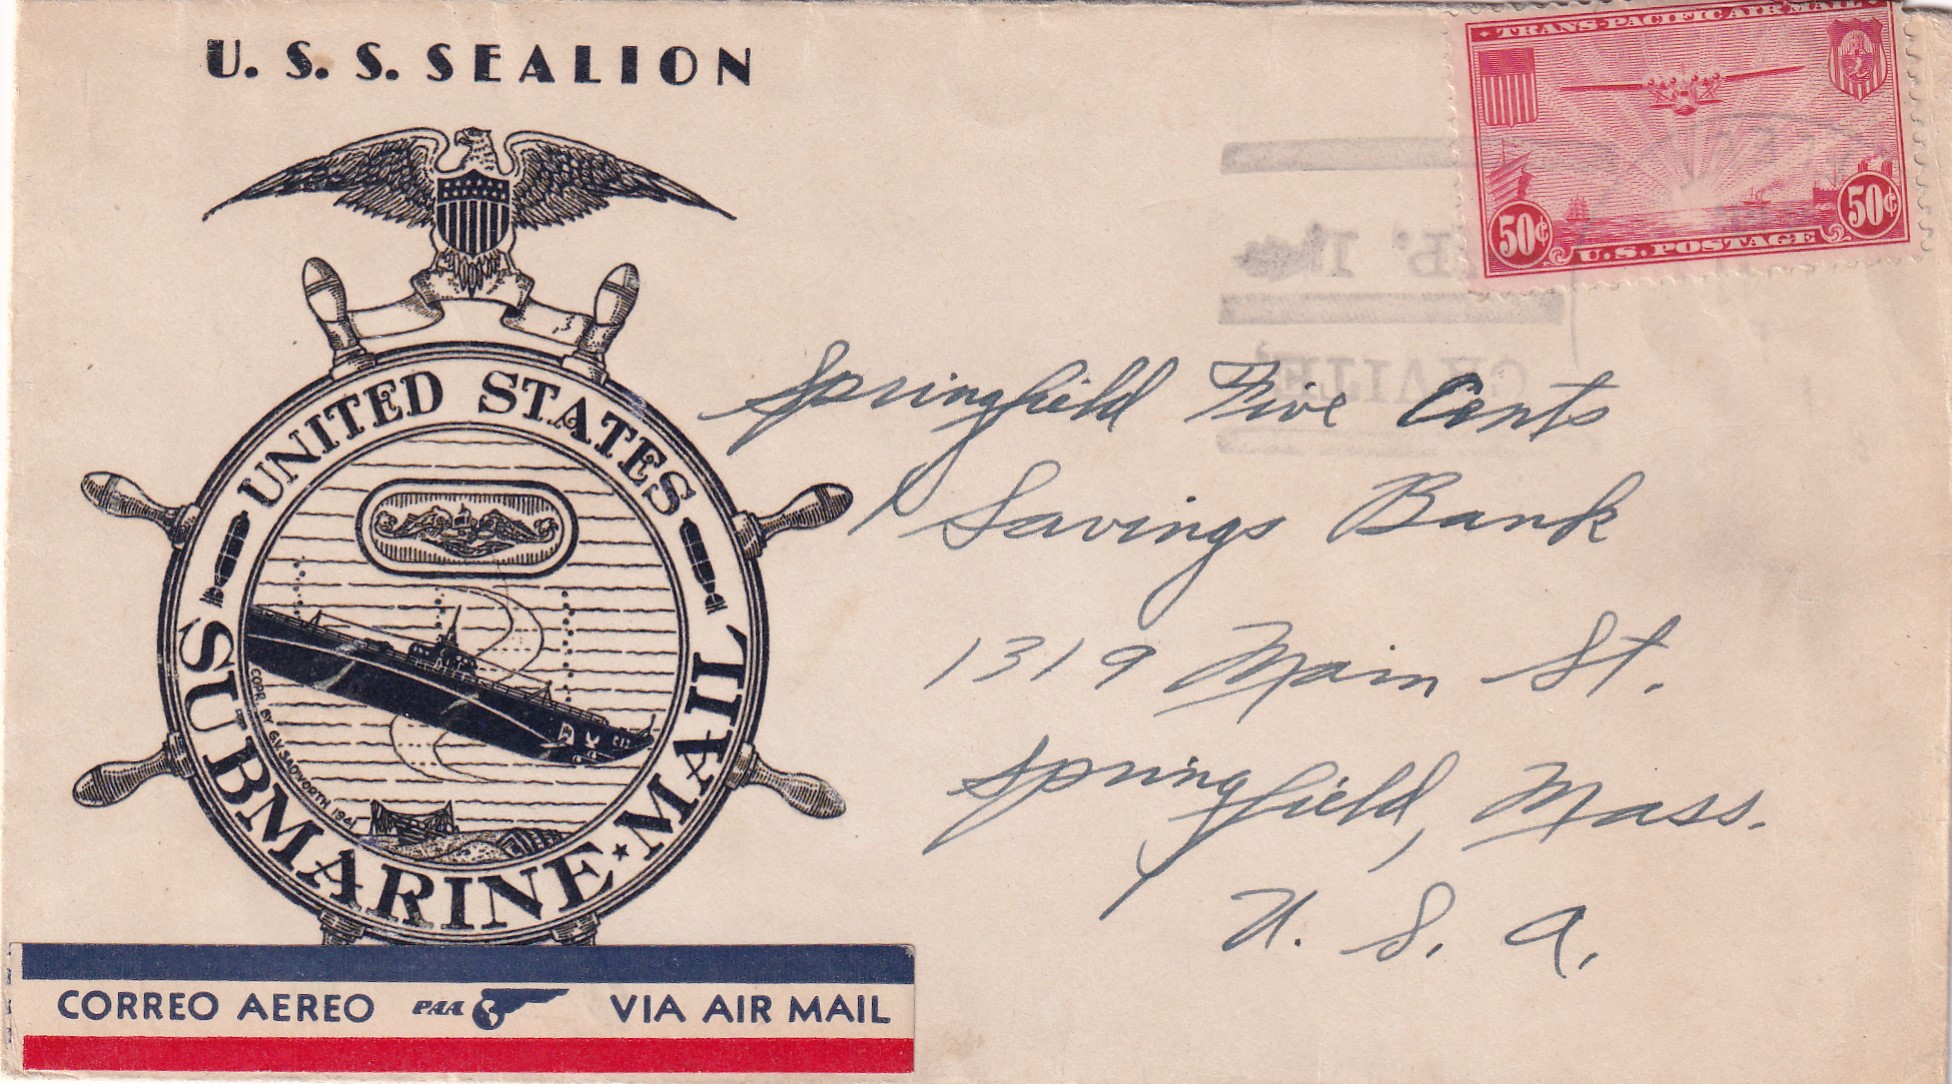 U. S. S. SEALION
TRANS-PACIFIC AIR MAIL
50¢
50¢
U.S. POSTAGE
UNITED STATES
SUBMARINE★MAIL
COPR. BY G.V. SADWORTH 1941
Springfield Five Cents
Savings Bank
1319 Main St.
Springfield, Mass.
U. S. A.
CORREO AEREO PAA VIA AIR MAIL